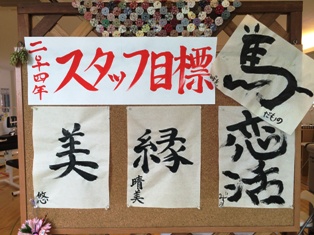 二千十四年
スタッフ目標
美
悠
縁
晴美
馬
だもの
恋活